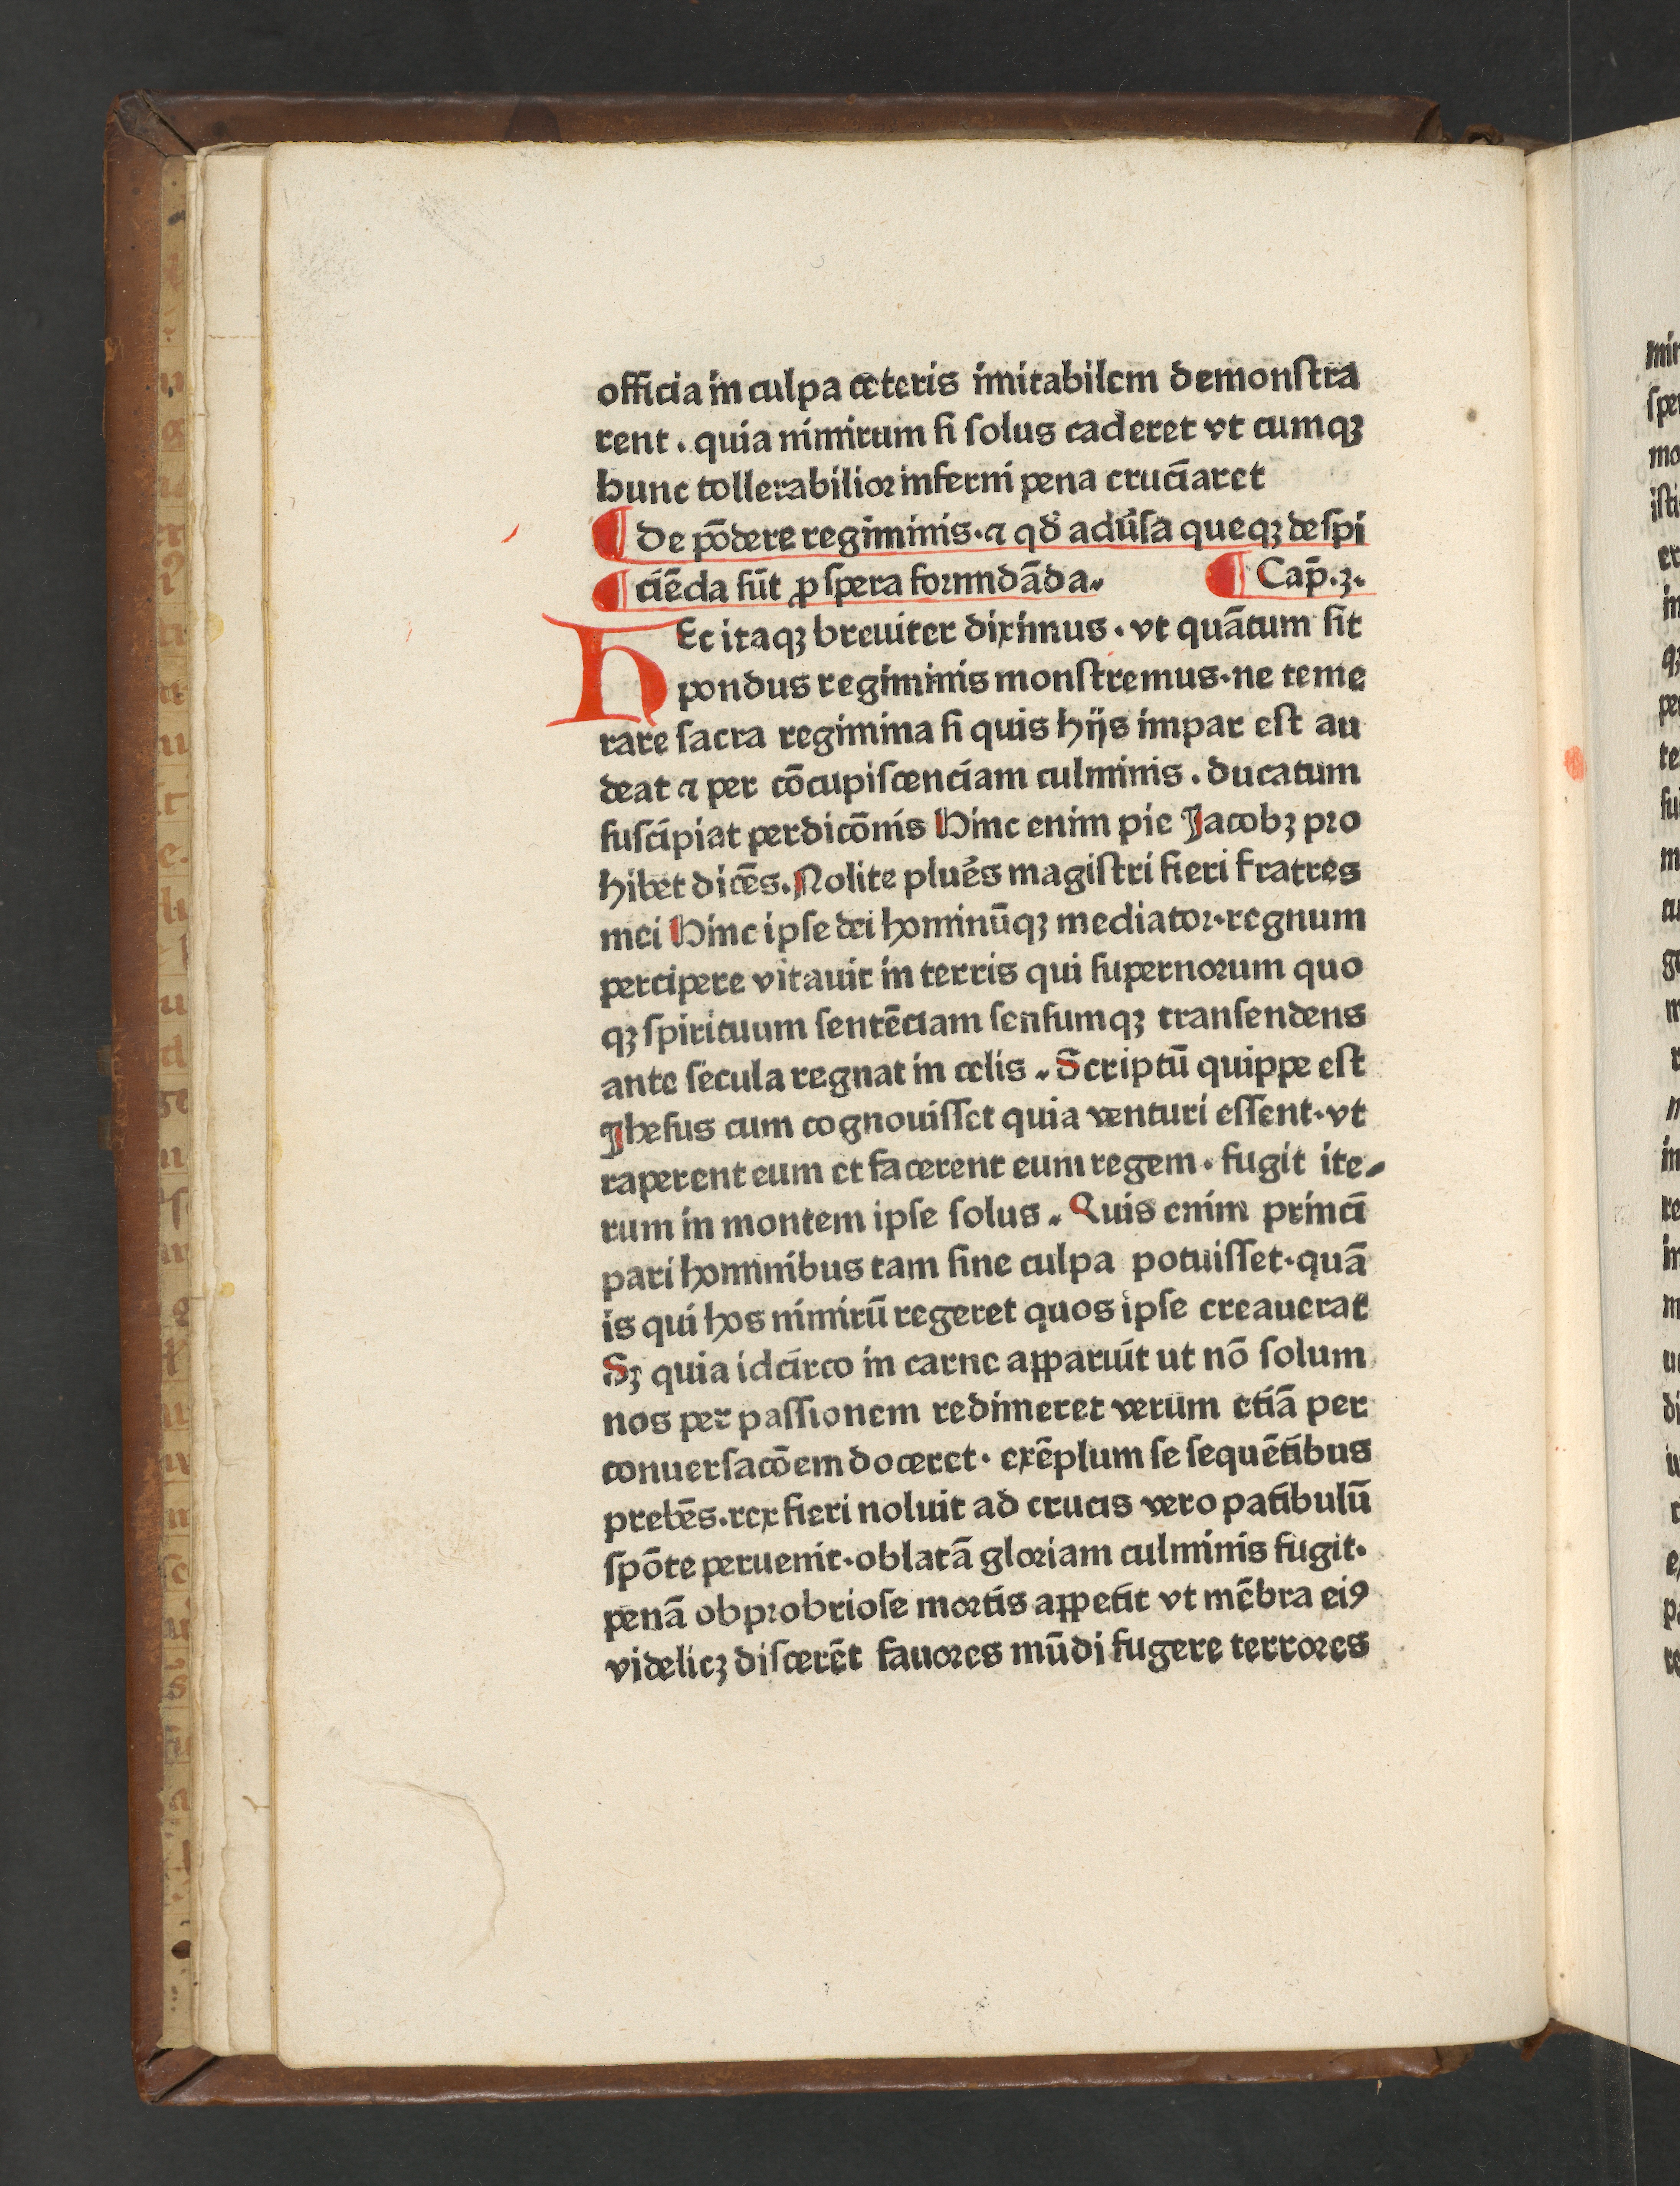 officia in culpa ceteris imitabilem demonſtra
rent . quia nimirum ſi ſolus caderet vt cumqꝫ
hunc tollerabilioꝛ inferni pena cruciaret
¶ De põdere regiminis . ⁊ qð adũſa queqꝫ deſpi
¶ ciẽda ſũt ꝓſpera foꝛmidãda . ¶ Cap̃ . 3 .
HEc itaqꝫ breuiter diximus . vt quãtum ſit
pondus regiminis monſtremus . ne teme
rare ſacra regimina ſi quis hijs impar eſt au
deat ⁊ per cõcupiſcenciam culminis . ducatum
ſuſcipiat perdicõnis Hinc enim pie Jacobꝫ pꝛo
hibet dicẽs . Nolite plués magiſtri fieri fratres
mei Hinc ipſe dei hominũqꝫ mediatoꝛ . regnum
percipere vitauit in terris qui ſupernoꝛum quo
qꝫ ſpirituum ſentẽciam ſenſumqꝫ tranſendens
ante ſecula regnat in celis . Scriptũ quippe eſt
Jheſus cum cognouiſſet quia venturi eſſent . vt
raperent eum et facerent eum regem . fugit ite⸗
rum in montem ipſe ſolus . Quis enim princi
pari hominibus tam ſine culpa potuiſſet . quã
is qui hos nimirũ regeret quos ipſe creauerat
Sꝫ quia idcirco in carne apparuit ut nõ ſolum
nos per paſſionem redimeret verum etiã per
conuerſacõem doceret . exẽplum ſe ſequẽtibus
prebẽs . rex fieri noluit ad crucis vero patibulũ
ſpõte peruenit . oblatã gloꝛiam culminis fugit .
penã obpꝛobrioſe moꝛtis appetit vt mẽbra eiꝰ
videlicꝫ diſcerẽt fauoꝛes mũdi fugere terroꝛes